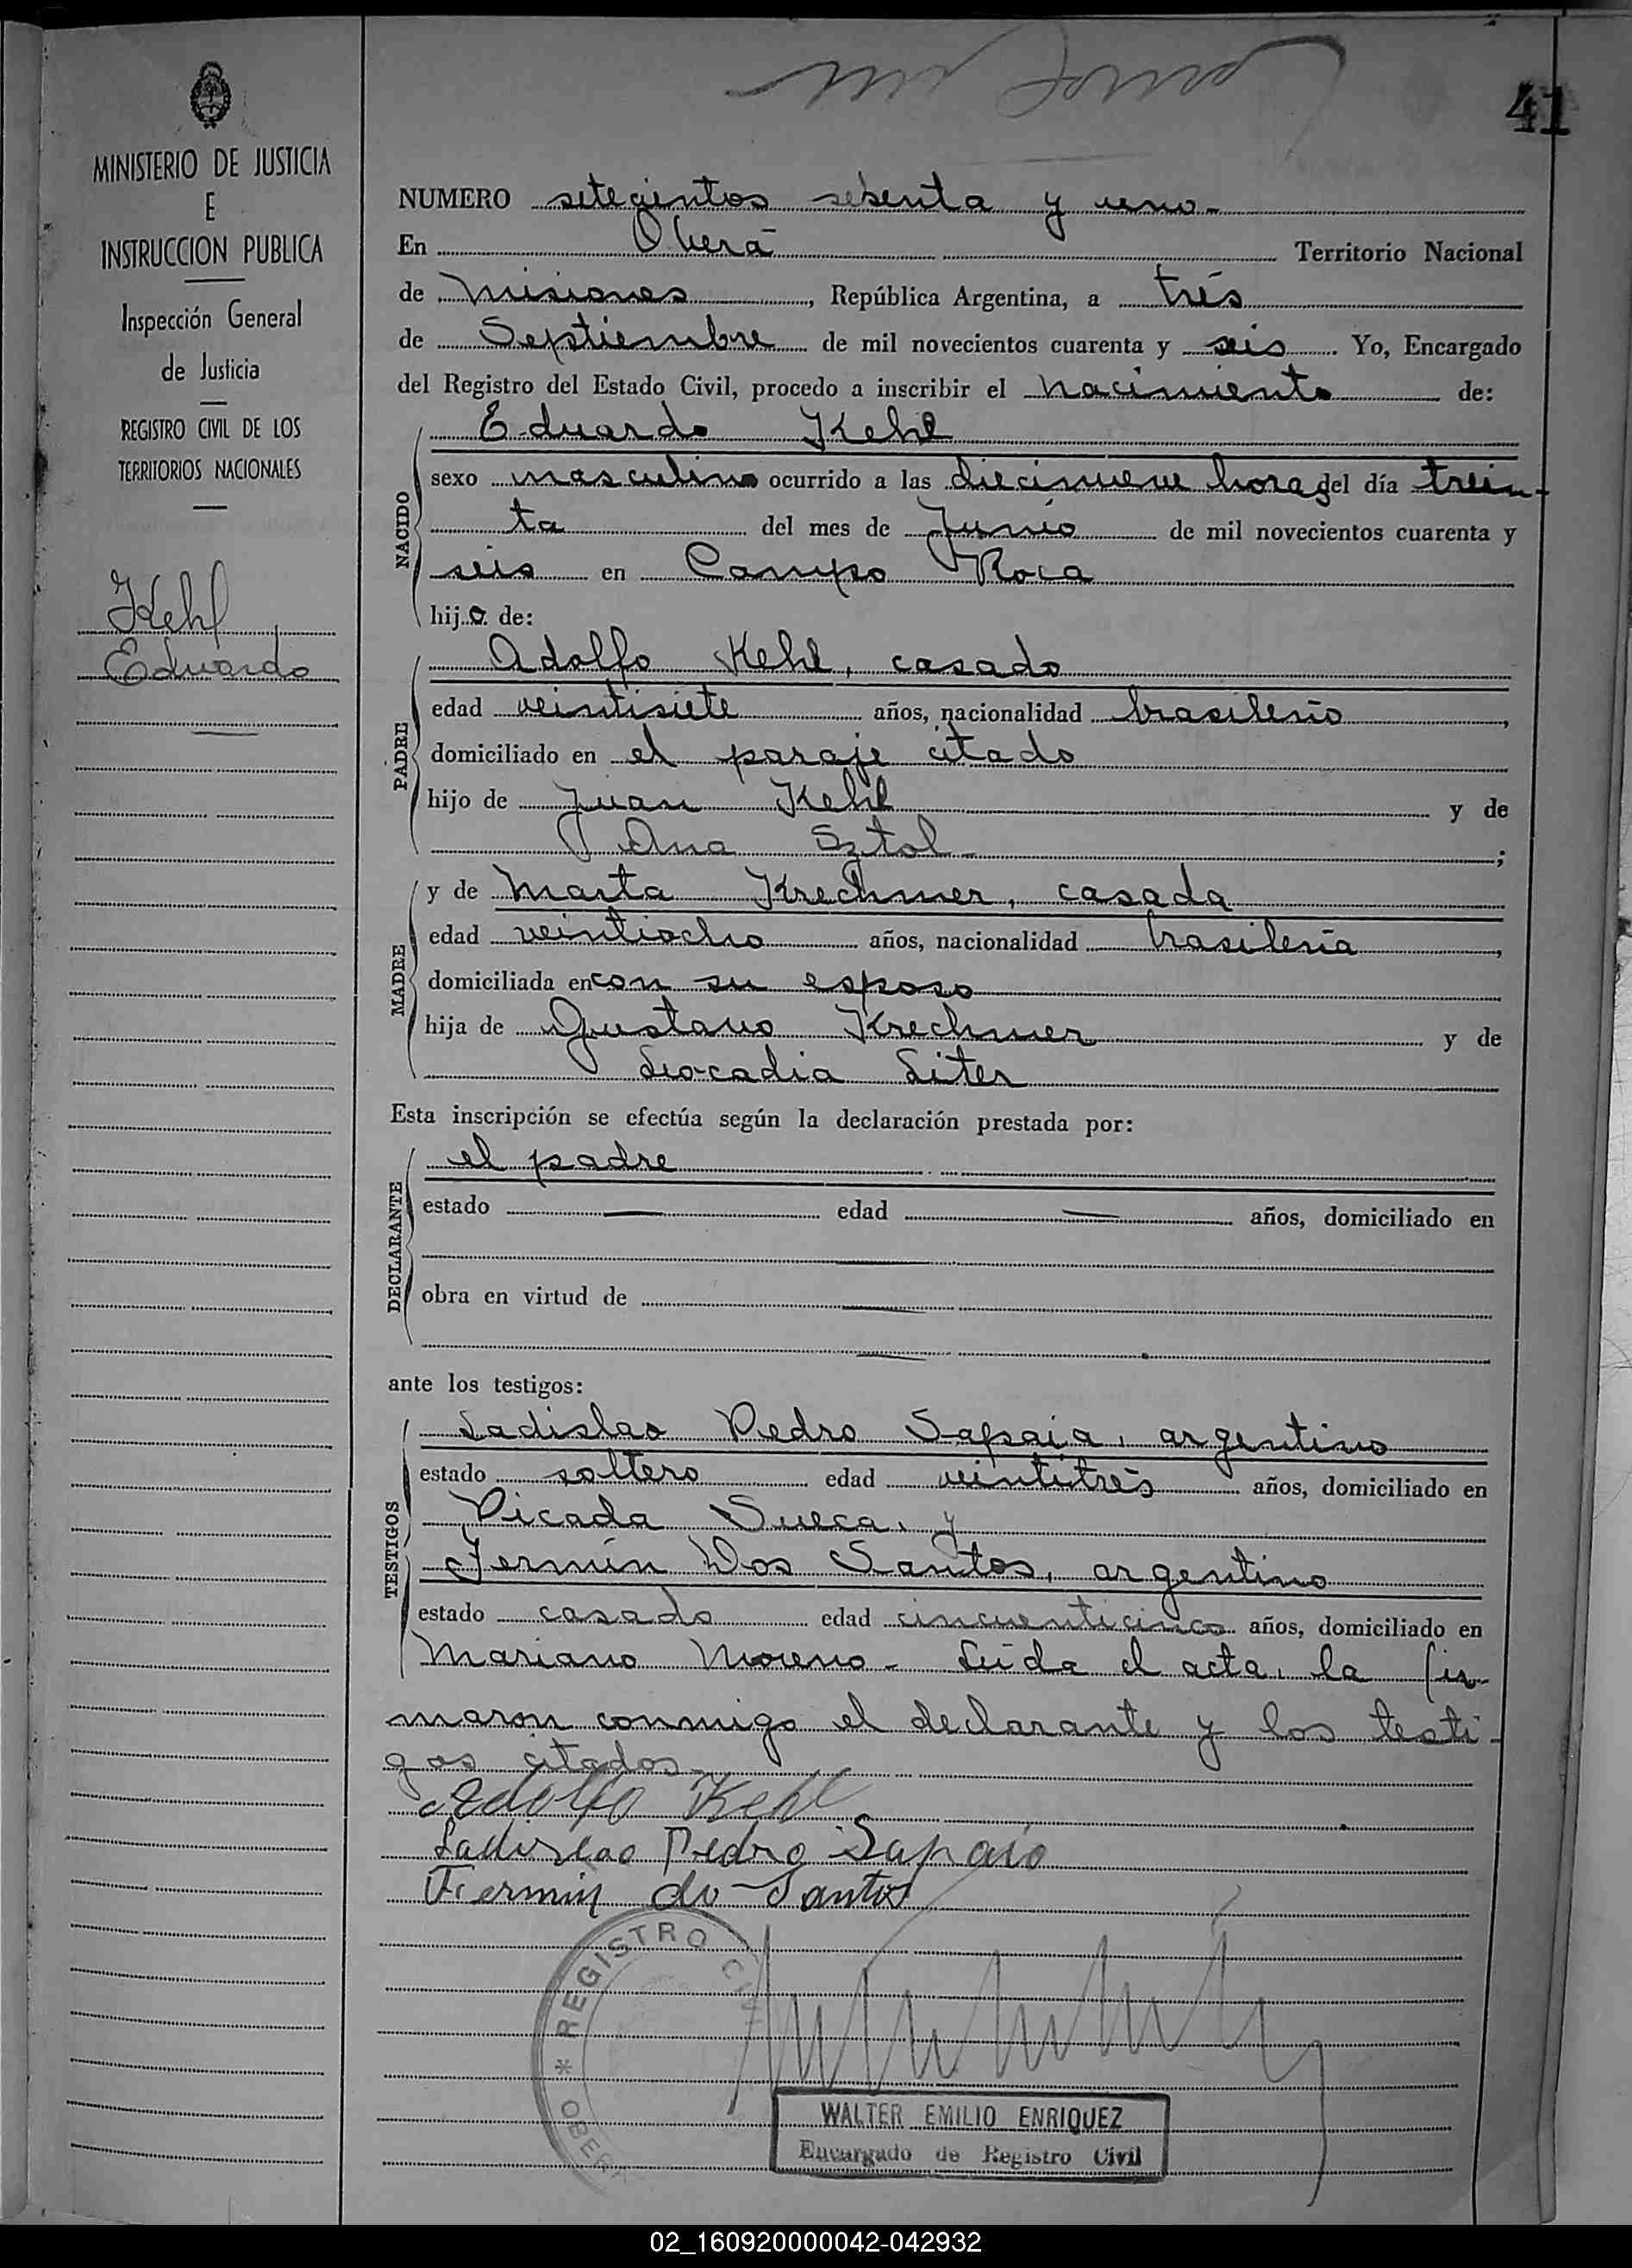 41
MINISTERIO DE JUSTICIA
E
INSTRUCCION PUBLICA
Inspección General
de Justicia
REGISTRO CIVIL DE LOS
TERRITORIOS NACIONALES
Kehl,
Eduardo
NUMERO setecientos sesenta y uno-
En Oberá Territorio Nacional
de Misiones, República Argentina, a trés
de Septiembre de mil novecientos cuarenta y seis. Yo, Encargado
del Registro del Estado Civil, procedo a inscribir el nacimiento de:
NACIDO
Eduardo Kehl
sexo masculino ocurrido a las diecinueve horas del día trein-
ta del mes de Junio de mil novecientos cuarenta y
seis en Campo Roca
hijo de:
PADRE
Adolfo Kehl, casado
edad veintisiete años, nacionalidad brasileño,
domiciliado en el paraje citado
hijo de Juan Kehl y de
Ana Sztol- ;
MADRE
y de Marta Krechmer, casada
edad veintiocho años, nacionalidad brasileña,
domiciliada en con su esposo
hija de Gustavo Krechmer y de
Leocadia Liter
Esta inscripción se efectúa según la declaración prestada por:
DECLARANTE
el padre
estado — edad — años, domiciliado en
—
obra en virtud de —
—
ante los testigos:
TESTIGOS
Ladislao Pedro Sapaia, argentino
estado soltero edad veintitrés años, domiciliado en
Picada Sueca, y
Fermín Dos Santos, argentino
estado casado edad cincuenticinco años, domiciliado en
Mariano Moreno- Leída el acta, la fir-
maron conmigo el declarante y los testi-
gos citados-
Adolfo Kehl
Ladislao Pedro Sapaio
Fiermin do Santos
* REGISTRO CIVIL
OBERA
WALTER EMILIO ENRIQUEZ
Encargado de Registro Civil
02_160920000042-042932